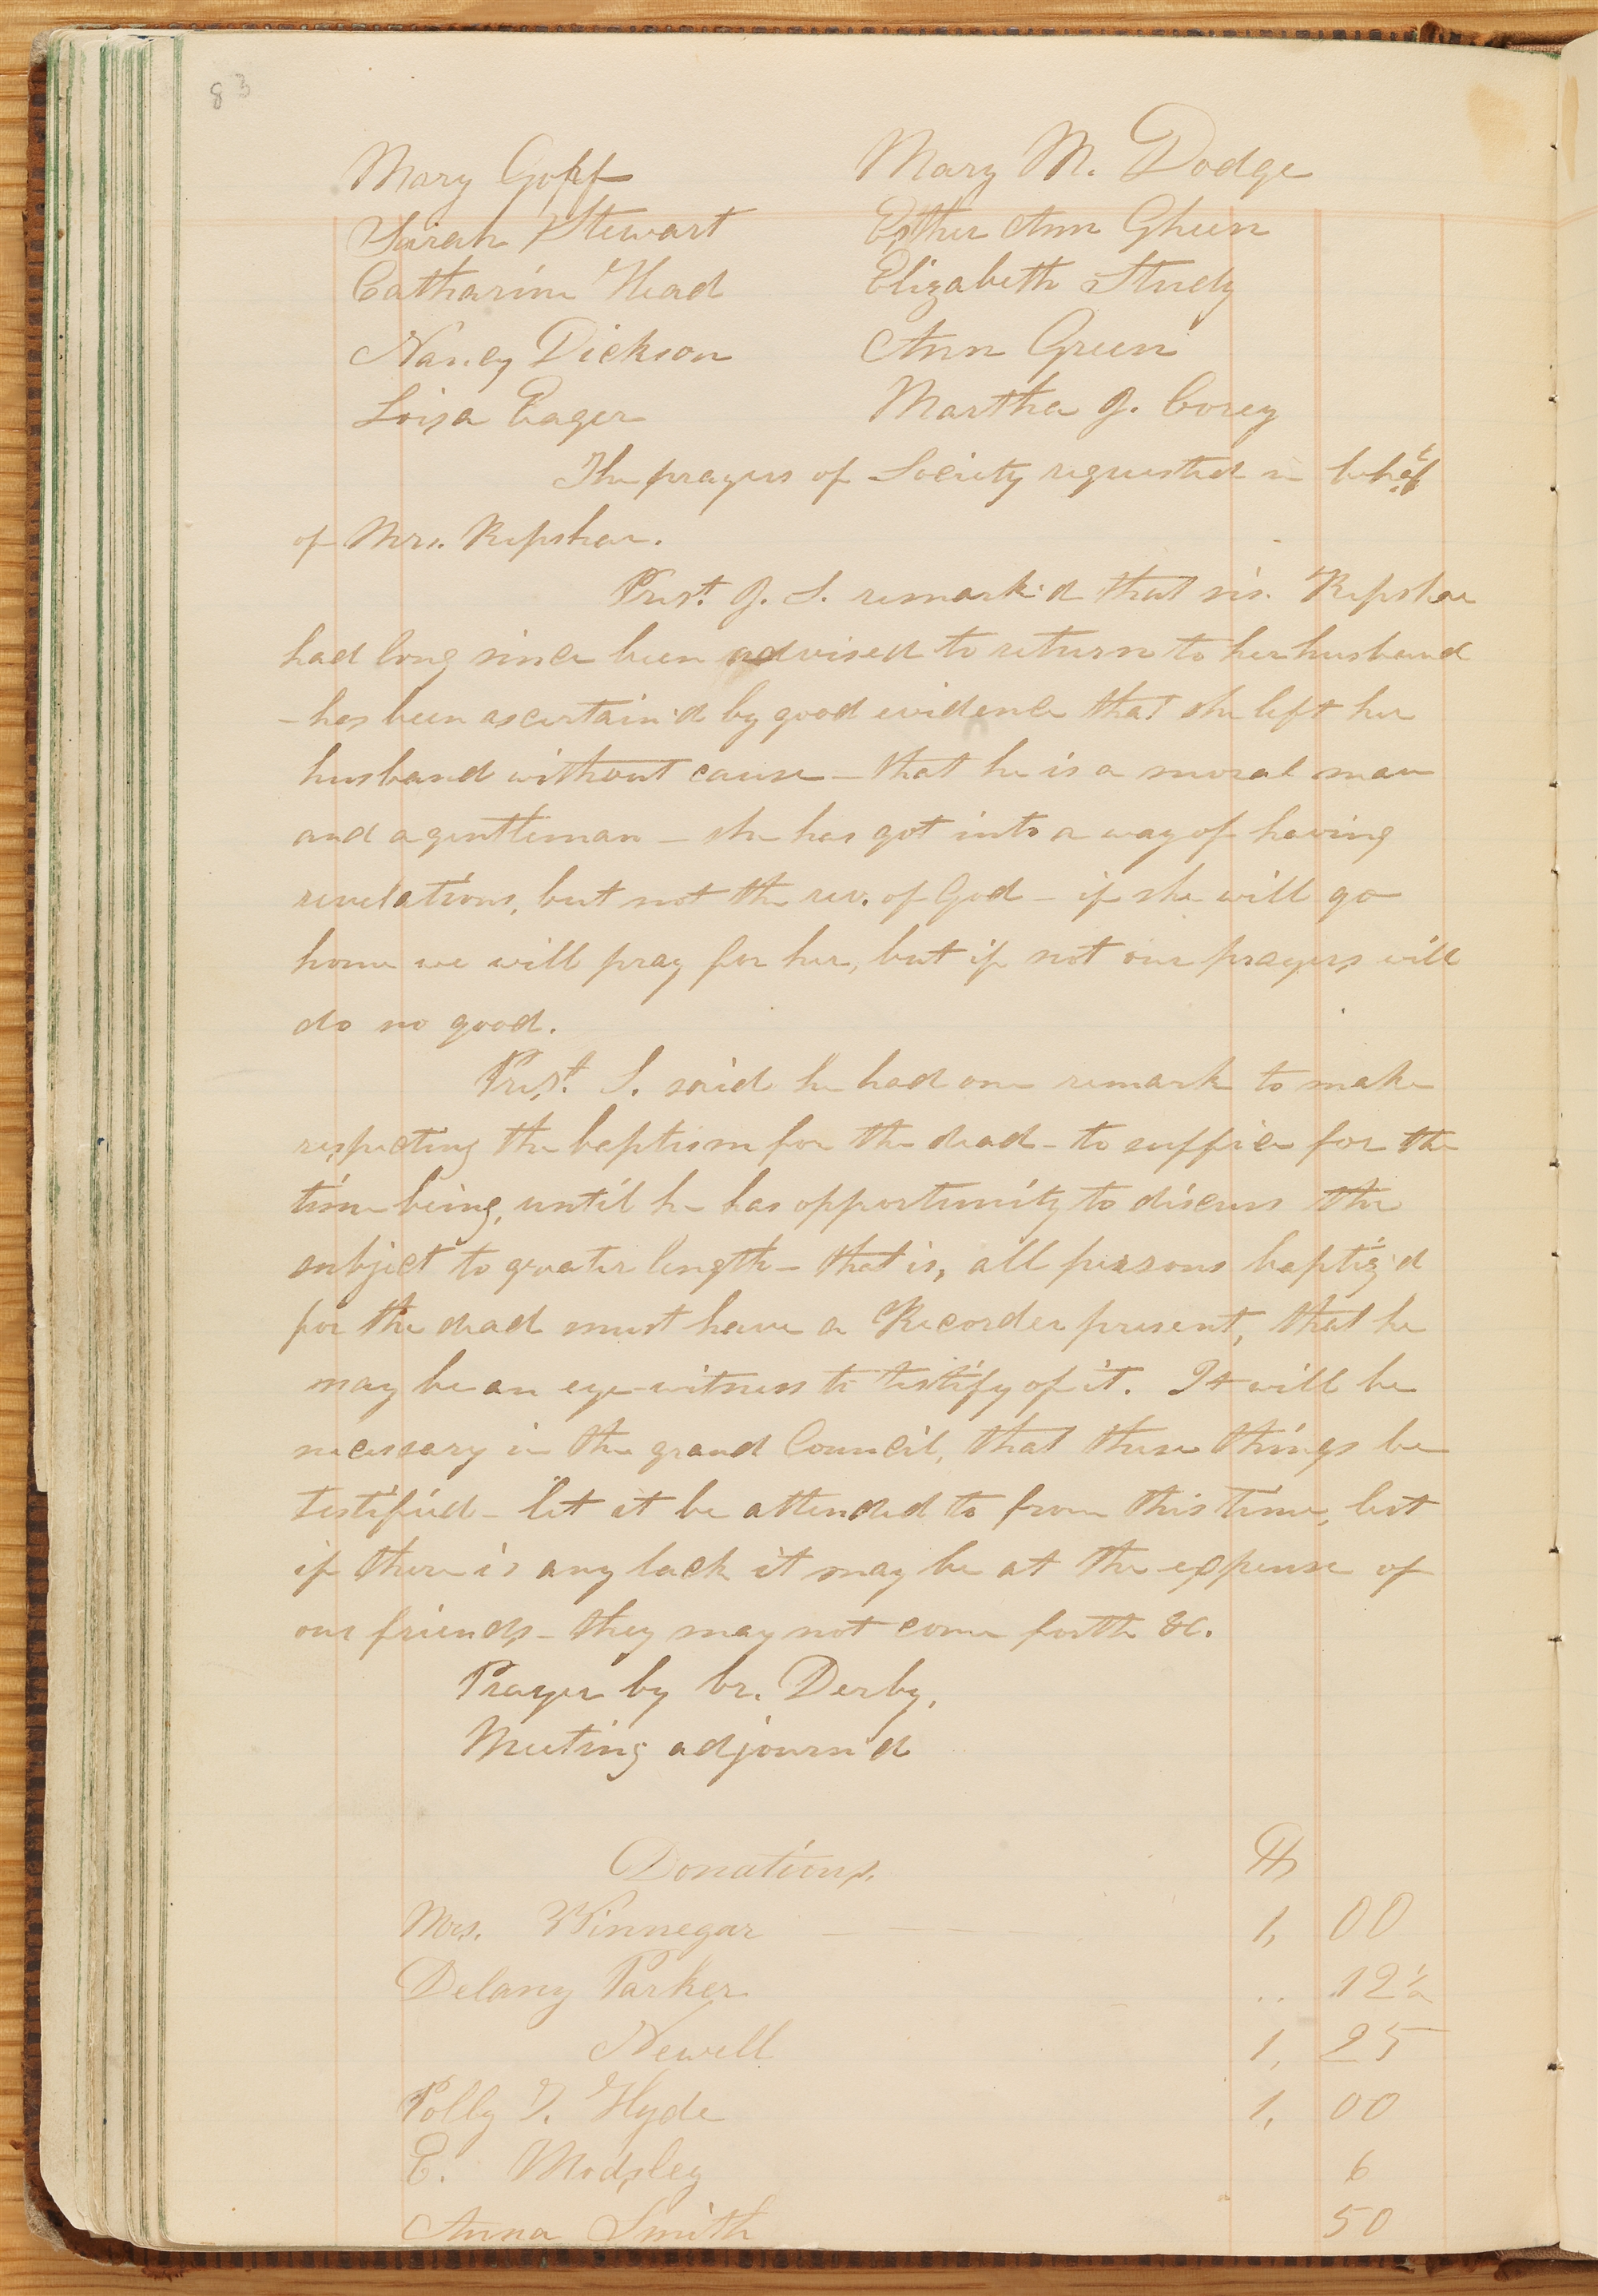 83
Mary Goff Mary M. Dodge
Sarah Stewart Esther Ann Gheen
Catharine Head Elizabeth Study
Nancy Dickson Ann Green
Loisa Eager Martha J. Corey
The prayers of Society requested in behalf
of Mrs. Repshar.
Prest. J. S. remark'd that sis. Repshar
had long since been advised to return to her husband
- has been ascertain'd by good evidence that she left her
husband without cause - that he is a moral man
and a gentleman - she has got into a way of having
revelations, but not the rev. of God - if she will go
home we will pray for her, but if not our prayers will
do no good.
Prest. S. said he had one remark to make
respecting the baptism for the dead - to suffice for the
time being, until he has opportunity to discuss the
subject to greater length - that is, all persons baptiz'd
for the dead must have a Recorder present, that he
may be an eye-witness to testify of it. It will be
necessary in the grand Council, that these things be
testified - let it be attended to from this time, but
if there is any lack it may be at the expense of
our friends - they may not come forth &c.
Prayer by br. Derby.
Meeting adjourn'd
Donations.
Mrs. Winnegar 1, 00
Delany Parker .. 12½
Newell 1, 25
Polly Z. Hyde 1, 00
E. Modsley 6
Anna Smith 50